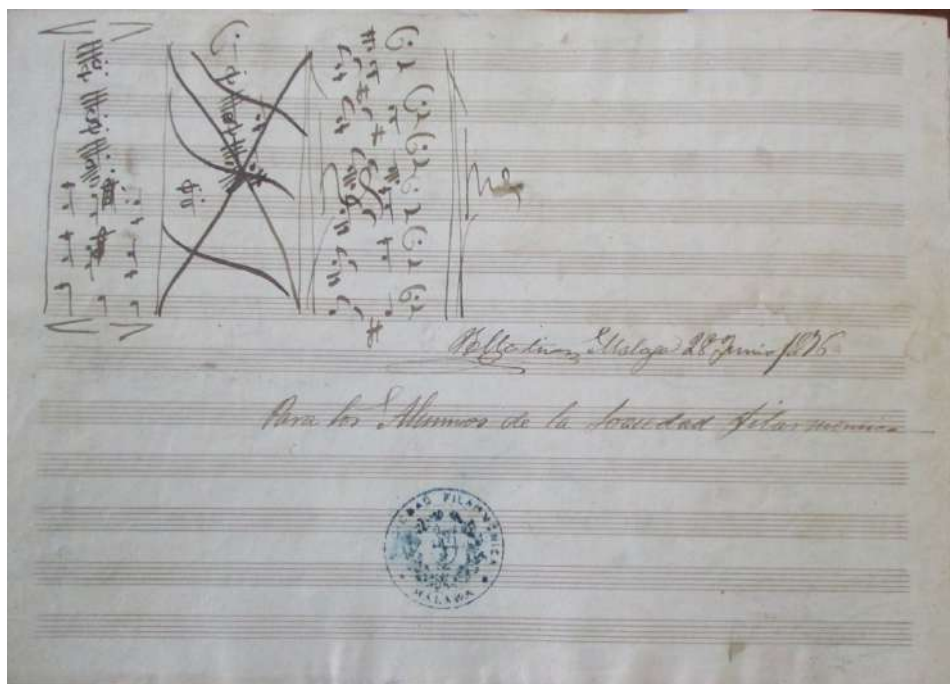 Malaga 28 Junio 1876
Para los Alumnos de la Sociedad Filarmónica
SOCIEDAD FILARMÓNICA
MÁLAGA